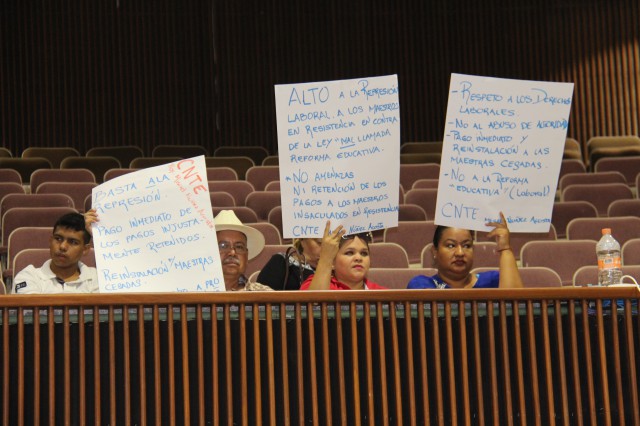 BASTA ALA
REPRESIÓN.
PAGO INMEDIATO DE
LOS PAGOS INJUSTA-
MENTE RETENIDOS.
REINSTALACIÓN MAESTRAS
CESADAS.
CNTE
ALTO A LA REPRESIÓN
LABORAL A LOS MAESTROS
EN RESISTENCIA EN CONTRA
DE LA LEY "MAL LLAMADA
REFORMA EDUCATIVA.
NO AMENAZAS
NI RETENCIÓN DE LOS
PAGOS A LOS MAESTROS
INSACULADOS EN RESISTENCIA
CNTE
- RESPETO A LOS DERECHOS
LABORALES.
- NO AL ABUSO DE AUTORIDAD
- PAGO INMEDIATO Y
REINSTALACIÓN A LAS
MAESTRAS CESADAS.
- NO A LA REFORMA
"EDUCATIVA" (LABORAL)
CNTE